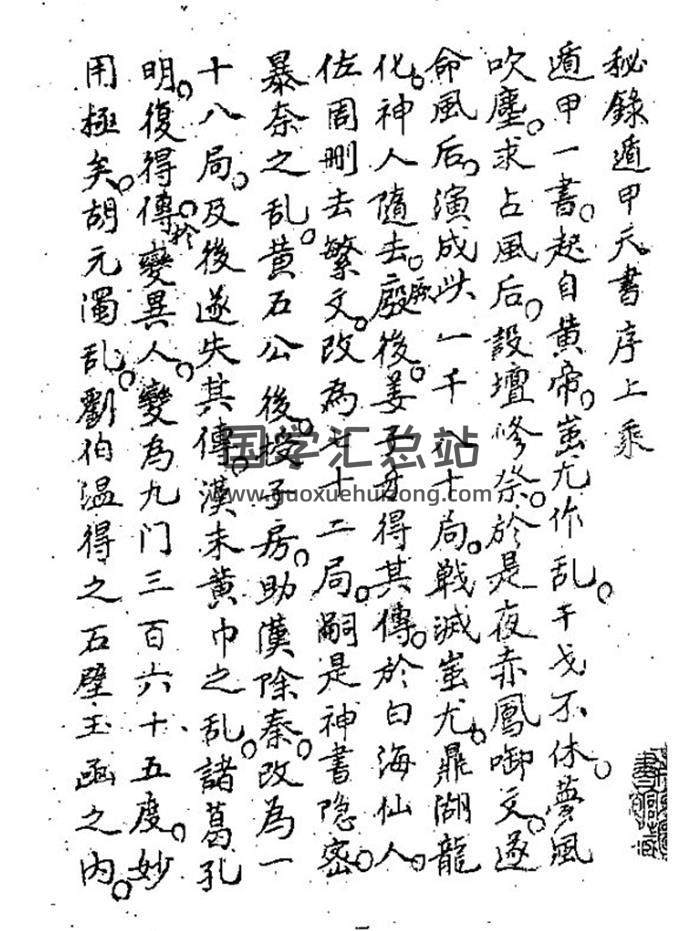 秘錄遁甲天書序上乘
遁甲一書。起自黄帝。蚩尤作乱。干戈不休。夢風
吹塵。求占風后。設壇修祭。於是夜赤鳳啣文。遂
命風后。演成此一千八十局。戰滅蚩尤。鼎湖龍
化。神人隨去。廏厥後。姜子牙得其傳。於白海仙人。
佐周刪去繁文。改為七十二局。嗣是神書隐密。
暴秦之乱。黄石公後。授子房。助漢除秦。改為一
十八局。及後遂失其傳。漢末黄巾之乱。諸葛孔
明。復得傳。於變異人。變為九门三百六十五度。妙
用極矣。胡元濁乱。劉伯温得之石壁玉函之内。
国学汇总站
www.guoxuehuizong.com